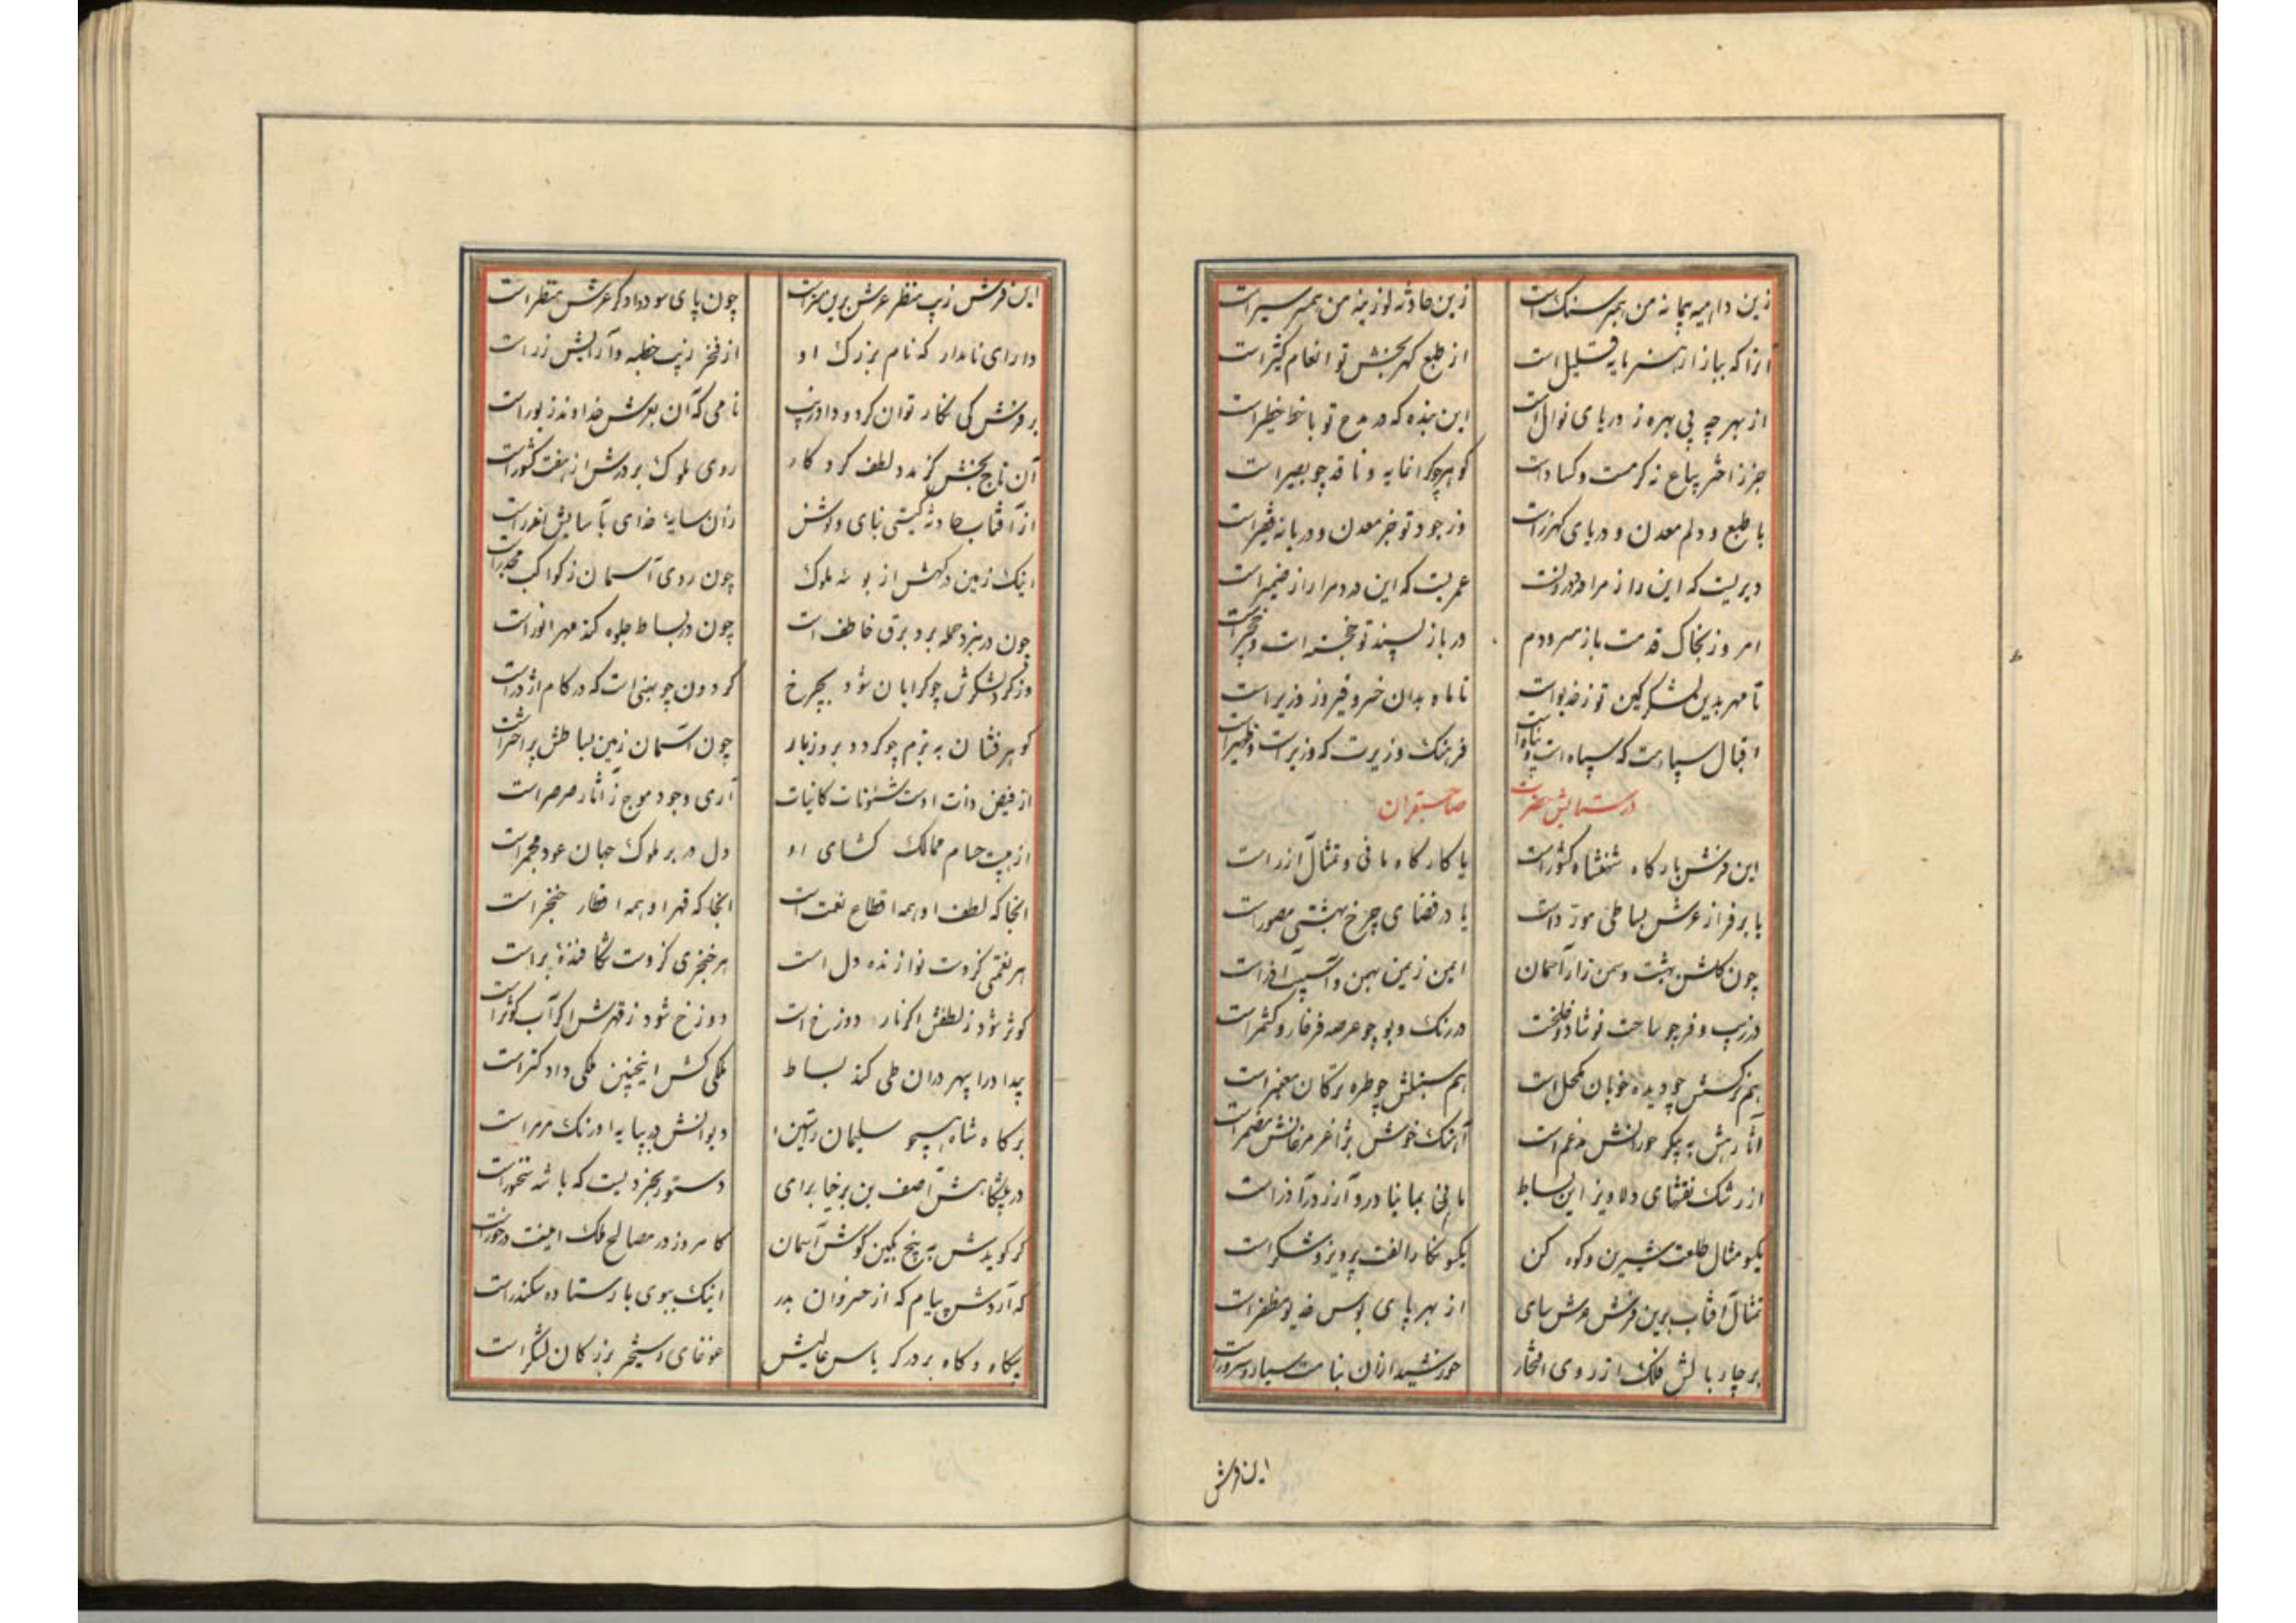 زین داهیه پیمانه من همبر سنگ است زین حادثه لوزینه من همبر سیر است
آنرا که ببازار هنر مایه قلیل است از طبع گهربخش تو انعام کثیر است
از بهر چه بی بهره ز دریای نوال است این بنده که در مدح تو با نظم خطیر است
جز زاختر بیاع نه گرمست و کساد است گوهر چو گرانمایه و ناقد چو بصیر است
با طبع و دلم معدن و دریای گهرزاست وز جود تو جز معدن و دریا نه فقیر است
دیریست که این راز مرا در عمریست که این درد مرا راز ضمیر است
امروز بخاک قدمت باز سرودم در باز پسند تو خجسته است و
تا مهر بدین لشکر کین توز خدیو است تا ماه بدان خسرو فیروز وزیر است
اقبال سپاهت که سپاه است و پناه است فرهنگ وزیرت که وزیر است و ظهیر است
در ستایش حضرت صاحبقران
این فرش بارگاه شهنشاه کشور است یا کارگاه مانی و تمثال آزر است
یا بر فراز عرش بساطی مور داست یا در فضای چرخ بهشتی مصور است
چون گلشن بهشت و سمن زار آسمان ایمن زمین بهمن و آسیب آذر است
در زیب و فر چو ساحت نوشاد و خلخ است در رنگ و بو چو عرصه فرخار و کشمر است
هم نرگسش چو دیده خوبان مکحل است هم سنبلش چو طره ترکان معنبر است
آثار هش به پیکر حورانش مدغم است آهنگ خوش بژاغر مرغانش مضمر است
از رشک نقشهای دلاویز این بساط مانی بما نیا درو آزر در آذر است
یکسو مثال طلعت شیرین و کوه کن یکسو نگار الفت پرویز و شکر است
تمثال آفتاب برین فرش عرش سای از بهر پای بوس خدیو مظفر است
بر چار بالش فلک از روی افتخار خورشید ازان بنا مت سیاره سرور است
این فرش
این فرش زیب منظر عرش برین سزاست چون پای سود داد گر عرش منظر است
دارای نامدار که نام بزرگ او از فخر زیب خطبه و آرایش زر است
بر فرش کی نگار توان کرد و داد زیب نامی که آن بعرش خداوند زیور است
آن تاج بخش کز مدد لطف کردگار روی ملوک بر درش از هفت کشور است
از آفتاب حادثه گیتی نیابی ولوشش زان سایه خدای بآسایش اندر است
اینک زمین درگهش از بوسه ملوک چون روی آسمان ز کواکب مجدر است
چون در نبرد حمله برد برق خاطف است چون در بساط جلوه کند مهر انور است
وز گرد لشکرش چو گرایان شود بچرخ گردون چو بیننی است که در کام اژدر است
گوهر فشان به بزم چو گردد بروز بار چون آسمان زمین بساطش پر اختر است
از فیض ذات اوست شئونات کاینات آری وجود موج ز آثار صرصر است
از هیبت حسام ممالک گشای او دل در بر ملوک جهان عود مجمر است
انجا که لطف او همه اقطاع نعمت است انجا که قهر او همه اقطار خنجر است
هر نغمتی کزوست نوازنده دل است هر خنجری کزوست شکافنده بر است
کوثر شود ز لطفش اگر نار دوزخ است دوزخ شود ز قهرش اگر آب کوثر است
بیدا درا پهر دران طی کند بساط ملکی کش اینچنین ملکی دادگستر است
برگاه شاه همچو سلیمان راستین دیوانش در بپایه اورنگ مرمر است
در پیشگاهش آصف بن برخیا برای دستور بخردیست که با شه سخنور است
گر گویدش به پنج نگین گوش آسمان کامروز در مصالح ملک اینت در خور است
که آردش پیام که از خسروان بدر اینک ببوی بار ستاده سکندر است
بیگاه و گاه بر در کریاس عالیش غوغای و سیحر بزرگان لشگر است